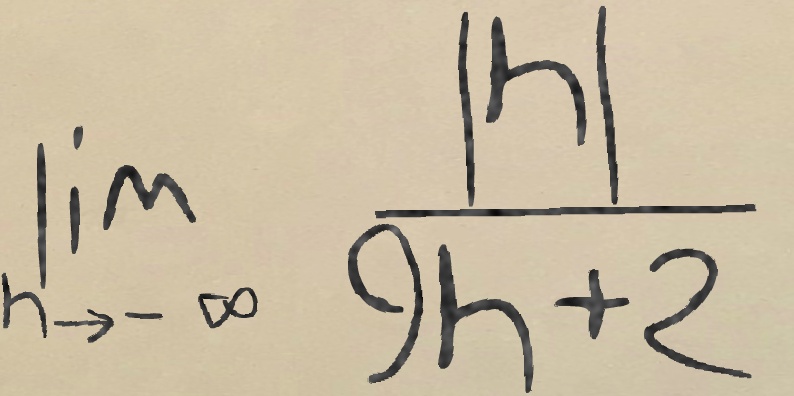 lim |h|
h→-∞ 9h+2